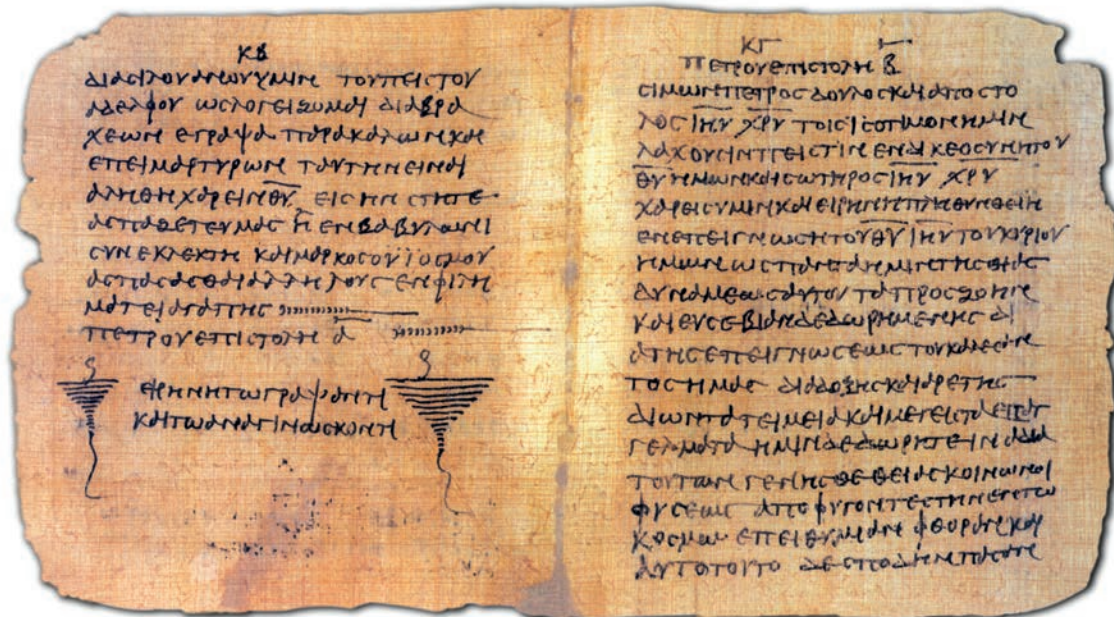 ΚΒ
ΔΙΑϹΙΛΟΥΑΝΟΥΥΜΙΝ ΤΟΥΠΕΙϹΤΟΥ
ΑΔΕΛΦΟΥ ΩϹΛΟΓΕΙΖΟΜΑΙ ΔΙΑΒΡΑ
ΧΕΩΝ ΕΓΡΑΨΑ ΠΑΡΑΚΑΛΩΝΚΑΙ
ΕΠΕΙΜΑΡΤΥΡΩΝ ΤΑΥΤΗΝΕΙΝΑΙ
ΑΛΗΘΗ ΧΑΡΕΙΝΘ̅Υ̅ ΕΙϹΗΝϹΤΗΤΕ
ΑϹΠΑΖΕΤΕΥΜΑϹ Η ΕΝΒΑΒΥΛΩΝΙ
ϹΥΝΕΚΛΕΚΤΗ ΚΑΙΜΑΡΚΟϹΟΥΙΟϹΜΟΥ
ΑϹΠΑϹΑϹΘΑΙΑΛΛΗΛΟΥϹ ΕΝΦΙΛΗ
ΜΑΤΕΙΑΓΑΠΗϹ
ΠΕΤΡΟΥΕΠΙϹΤΟΛΗ Α̅
ΕΙΡΗΝΗΤΩΓΡΑΨΑΝΤΙ
ΚΑΙΤΩΑΝΑΓΙΝΩϹΚΟΝΤΙ
ΚΓ
ΠΕΤΡΟΥΕΠΙϹΤΟΛΗ Β̅
ϹΙΜΩΝΠΕΤΡΟϹΔΟΥΛΟϹΚΑΙΑΠΟϹΤΟ
ΛΟϹΙ̅Η̅Υ̅ Χ̅Ρ̅Υ̅ ΤΟΙϹΙϹΟΤΙΜΟΝΗΜΙΝ
ΛΑΧΟΥϹΙΝΠΕΙϹΤΙΝ ΕΝΔΙΚΕΟϹΥΝΗΤΟΥ
Θ̅Υ̅ ΗΜΩΝΚΑΙϹΩΤΗΡΟϹΙ̅Η̅Υ̅ Χ̅Ρ̅Υ̅
ΧΑΡΕΙϹΥΜΙΝΚΑΙΕΙΡΗΝΗΠΛΗΘΥΝΘΕΙΗ
ΕΝΕΠΕΙΓΝΩϹΗΤΟΥΘ̅Υ̅ Ι̅Η̅Υ̅ ΤΟΥΚΥΡΙΟΥ
ΗΜΩΝ ΩϹΠΑΝΤΑΗΜΙΝΤΗϹΘΙΑϹ
ΔΥΝΑΜΕΩϹΑΥΤΟΥ ΤΑΠΡΟϹΖΩΗΝ
ΚΑΙΕΥϹΕΒΙΑΝΔΕΔΩΡΗΜΕΝΗϹ ΔΙ
ΑΤΗϹΕΠΕΙΓΝΩϹΕΩϹ ΤΟΥΚΑΛΕϹΑΝ
ΤΟϹΗΜΑϹ ΔΙΑΔΟΞΗϹΚΑΙΑΡΕΤΗϹ
ΔΙΩΝΤΑΤΕΙΜΕΙΑΚΑΙΜΕΓΕΙϹΤΑΕΠΑΓ
ΓΕΛΜΑΤΑ ΗΜΙΝΔΕΔΩΡΗΤΕΙΝΑΔΙΑ
ΤΟΥΤΩΝ ΓΕΝΗϹΘΕ ΘΕΙΑϹΚΟΙΝΩΝΟΙ
ΦΥϹΕΩϹ ΑΠΟΦΥΓΟΝΤΕϹΤΗΝΕΝΤΩ
ΚΟϹΜΩ ΕΠΕΙΘΥΜΙΑΝ ΦΘΟΡΑΝΚΑΙ
ΑΥΤΟΤΟΥΤΟ ΔΕϹΠΟΔΗΝΠΑϹΑΝ